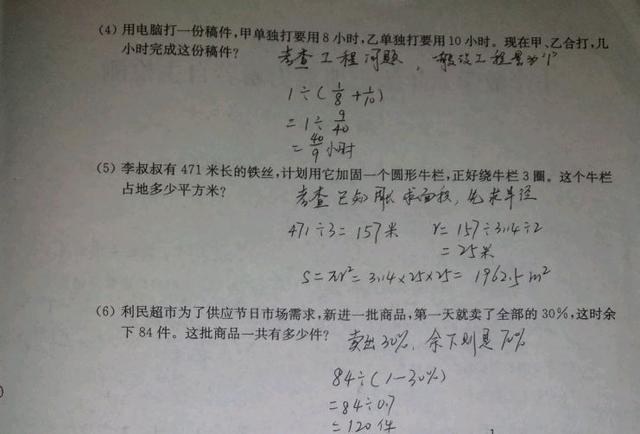 (4) 用电脑打一份稿件,甲单独打要用 8 小时,乙单独打要用 10 小时。现在甲、乙合打,几
小时完成这份稿件? 考查工程问题，一般设工程量为"1"
1÷(1/8+1/10)
=1÷9/40
=40/9 小时
(5) 李叔叔有 471 米长的铁丝,计划用它加固一个圆形牛栏,正好绕牛栏 3 圈。这个牛栏
占地多少平方米? 考查已知周长求面积，先求半径
471÷3=157米 r=157÷3.14÷2
=25米
S=πr²=3.14×25×25=1962.5m²
(6) 利民超市为了供应节日市场需求,新进一批商品,第一天就卖了全部的 30%,这时余
下 84 件。这批商品一共有多少件? 卖出30%，余下则是70%
84÷(1-30%)
=84÷0.7
=120件